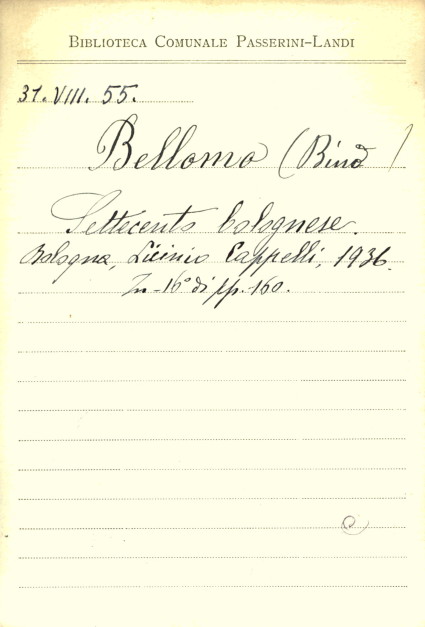 BIBLIOTECA COMUNALE PASSERINI-LANDI
31. VIII. 55.
Bellomo (Bino)
Settecento bolognese.
Bologna, Licinio Cappelli, 1936.
In-16° di pp. 160.